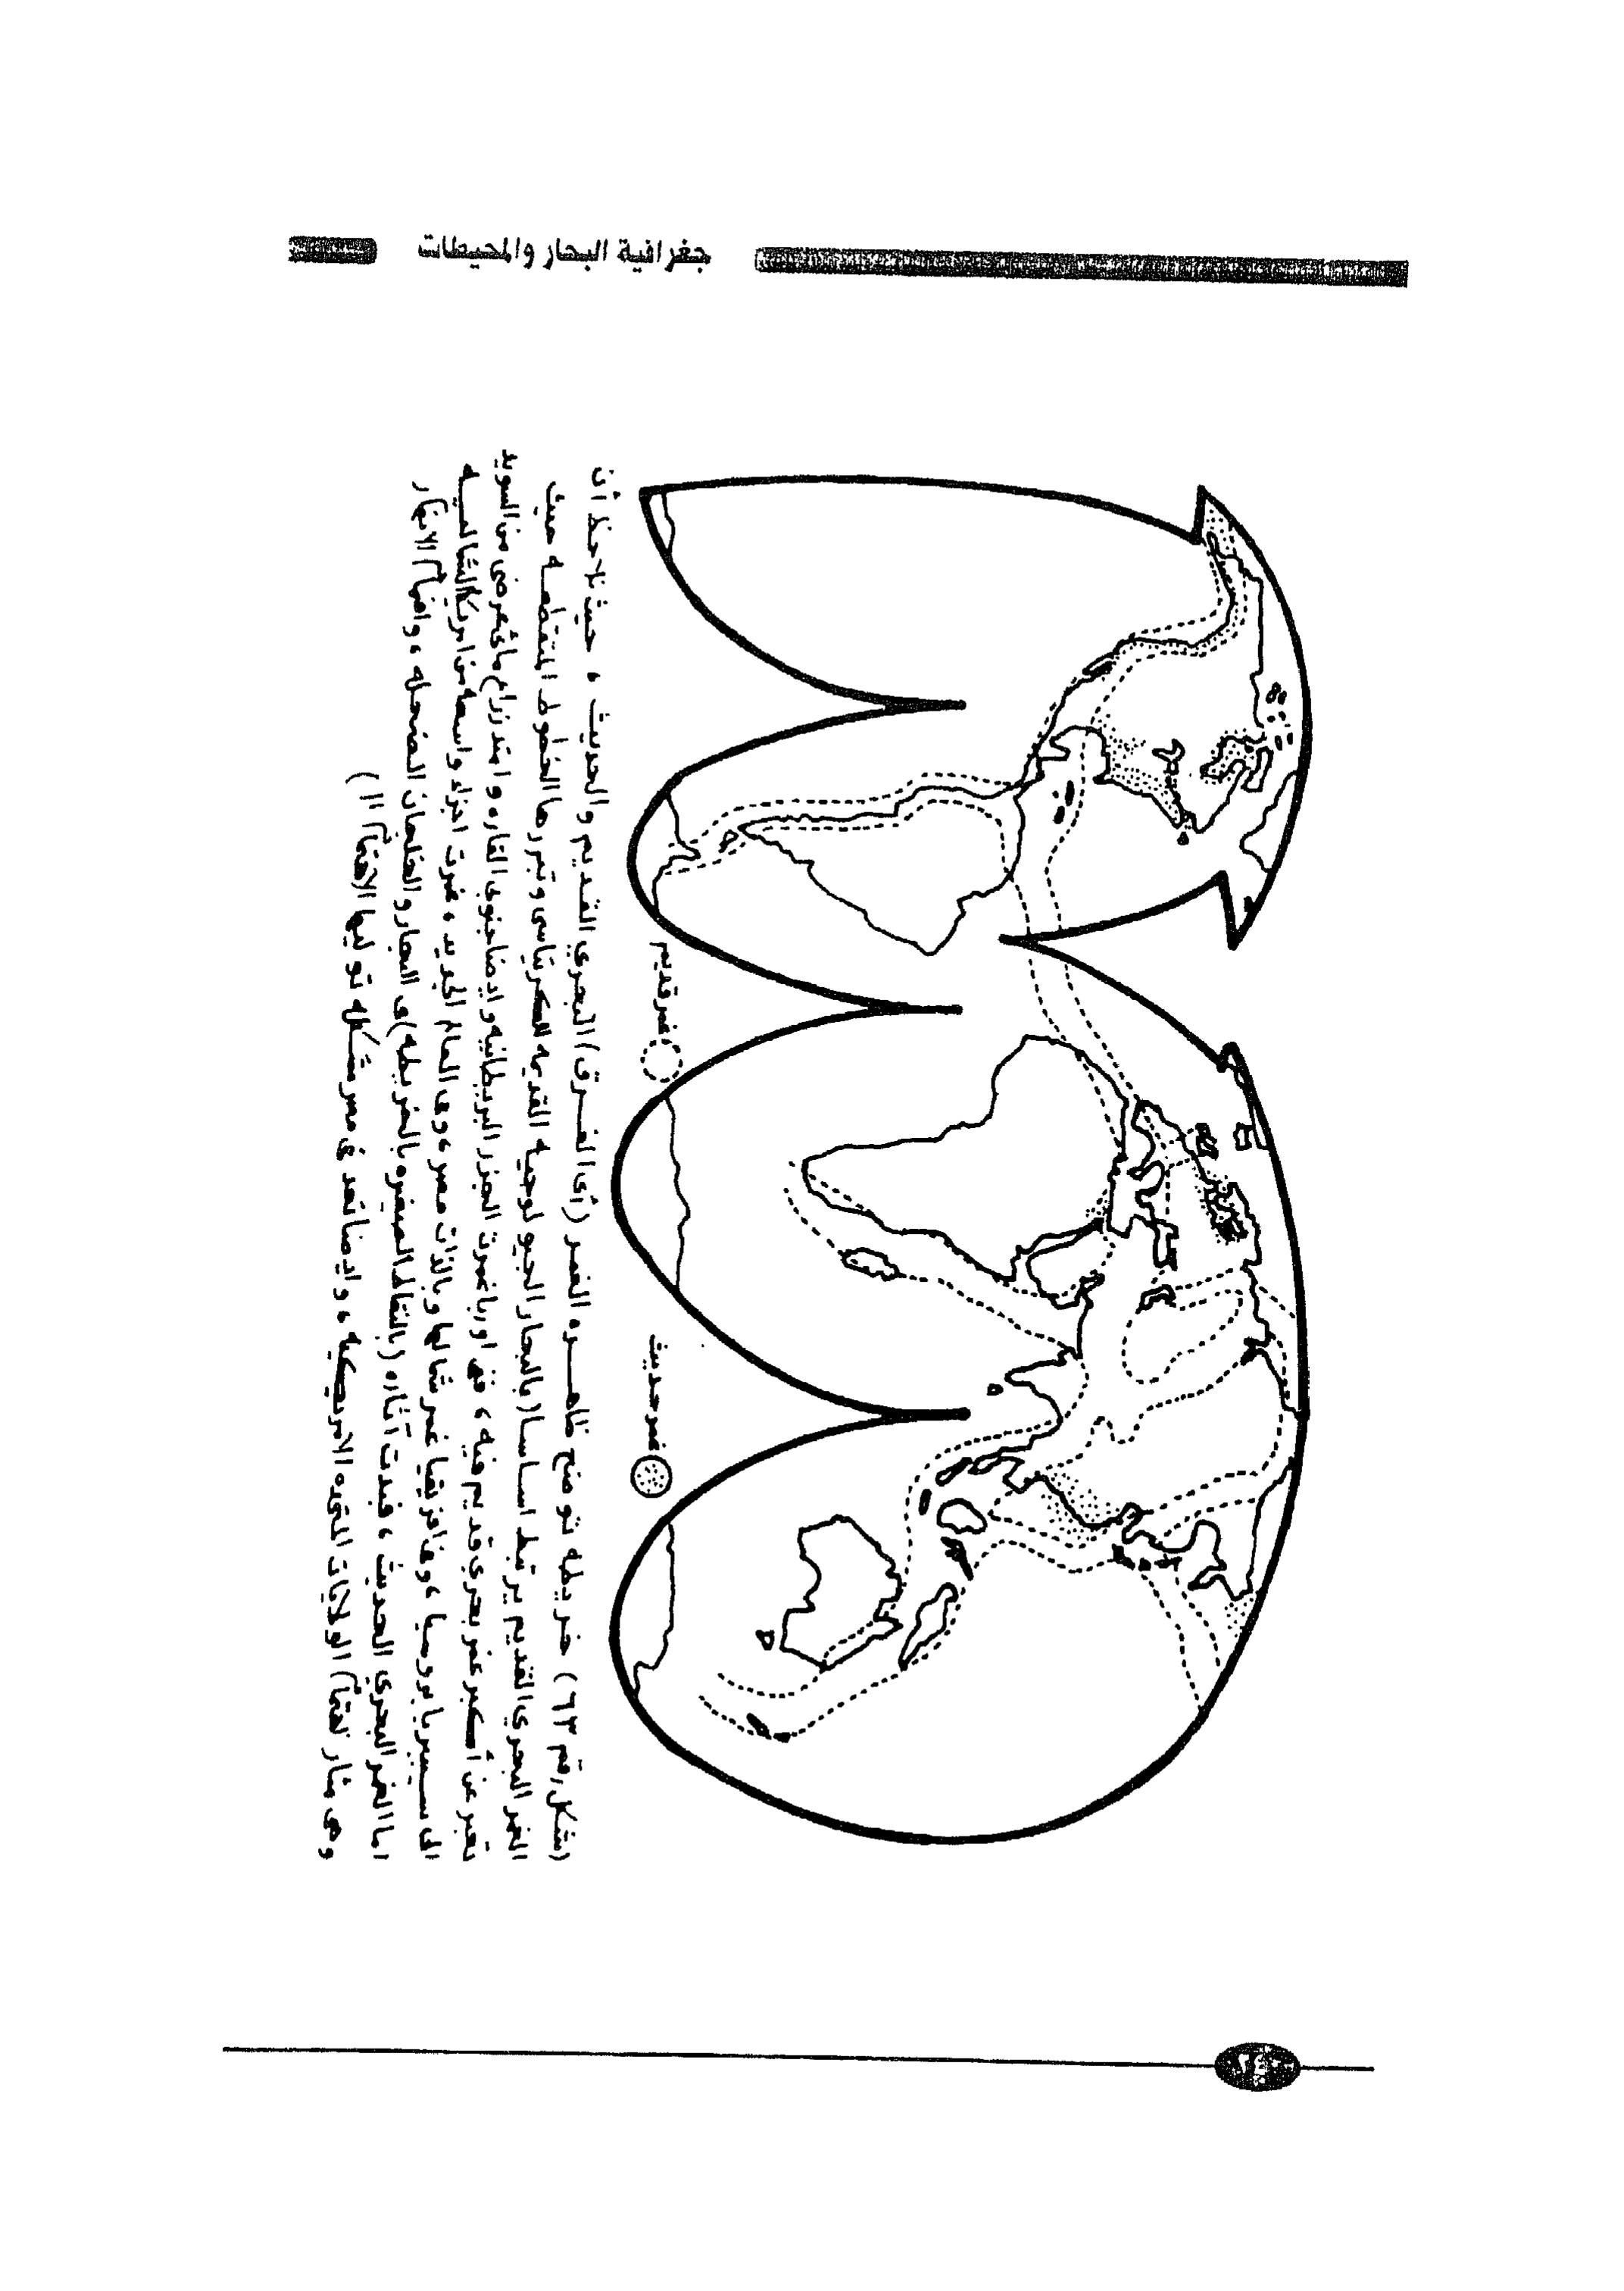 جغرافية البحار والمحيطات
غمر قديم
غمر حديث
(شكل رقم ٦٣) خريطه توضح ظاهـره الغمر (أى الغـرق) البحري القديم والحديث ، حيث نلاحظ أن
الغمر البحري القديم يرتبط اساسا بالبحار الجيولوجيه القديمه للكريتاسى وتبرزها الخطوط المتقطعه حيث
تعبر عن أكبر غمر بحرى قديم ، ففى اوربا غمرت الجزر البريطانيه وايضا جنوبى القاره وامتد زراع مائى عرضى من السويد
الى سيبيريا بروسيا ، وفى افريقيا غمر شمالها وبالذات مصر ، وفى العالم الجديد ، غمرت اجزاء واسعه من امريكا الشماليه
اما الغمر البحري الحديث ، فبدت آثاره (بالنقاط الصغيره بالخريطه) فى البحار والخلجان الضحله ، وافواه الانهار
وهى مثار اهتمام الولايات المتحده الامريكيه ، وايضا تعد فى مصر مشكله توليها الاهتمام !! )